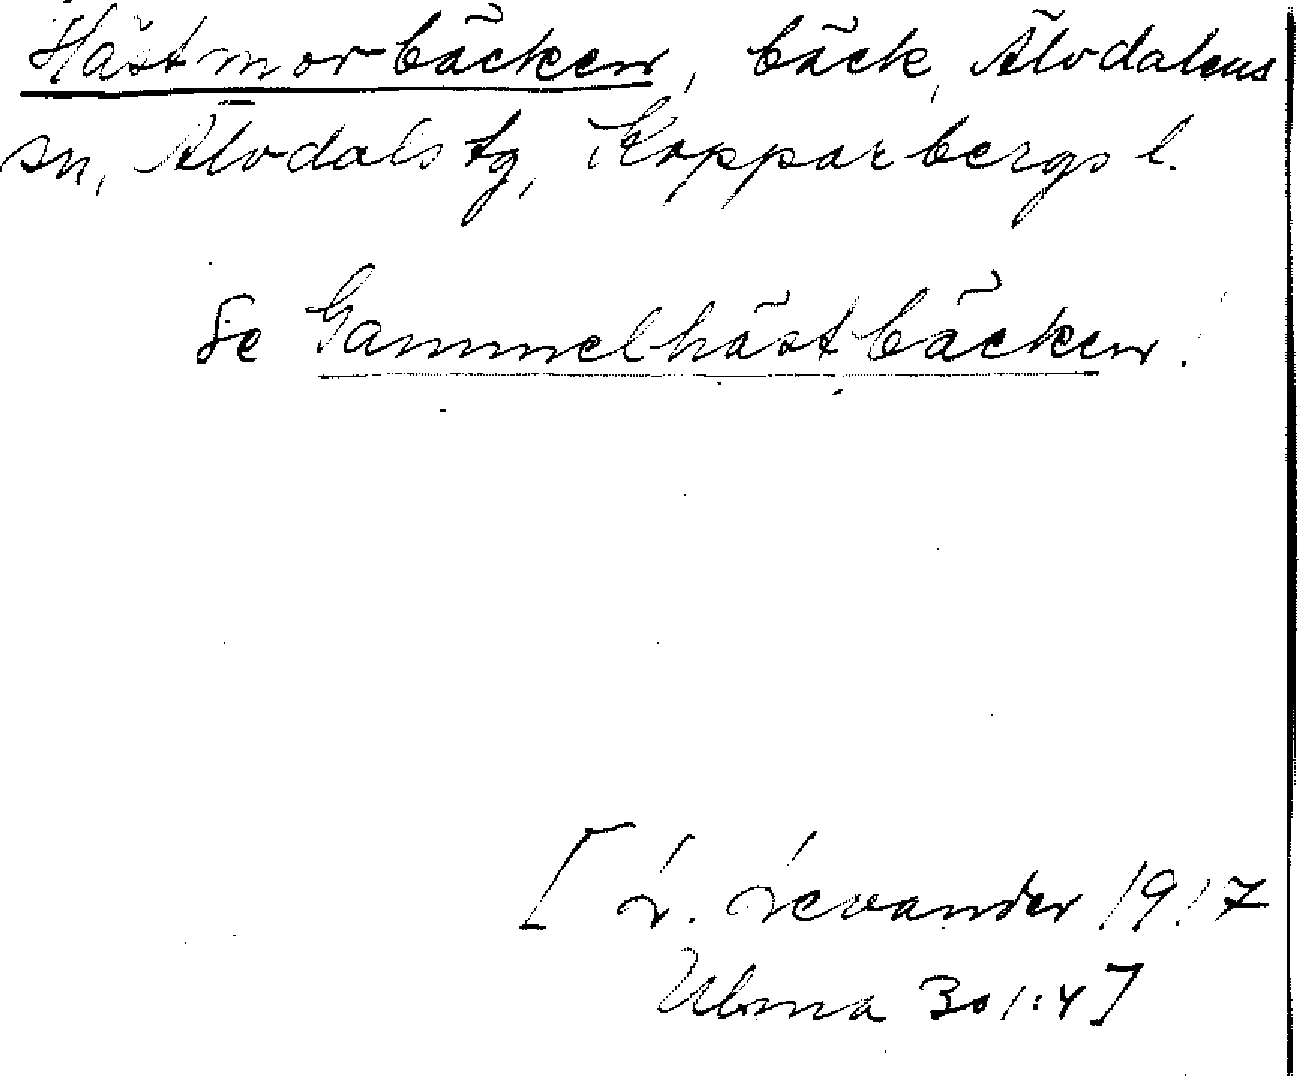 Hästmorbäcken, bäck, Älvdalens
sn, Älvdals tg, Kopparbergs l.
Se Gammelhästbäcken!
[L. Levander 1917
Ulma 301:4]